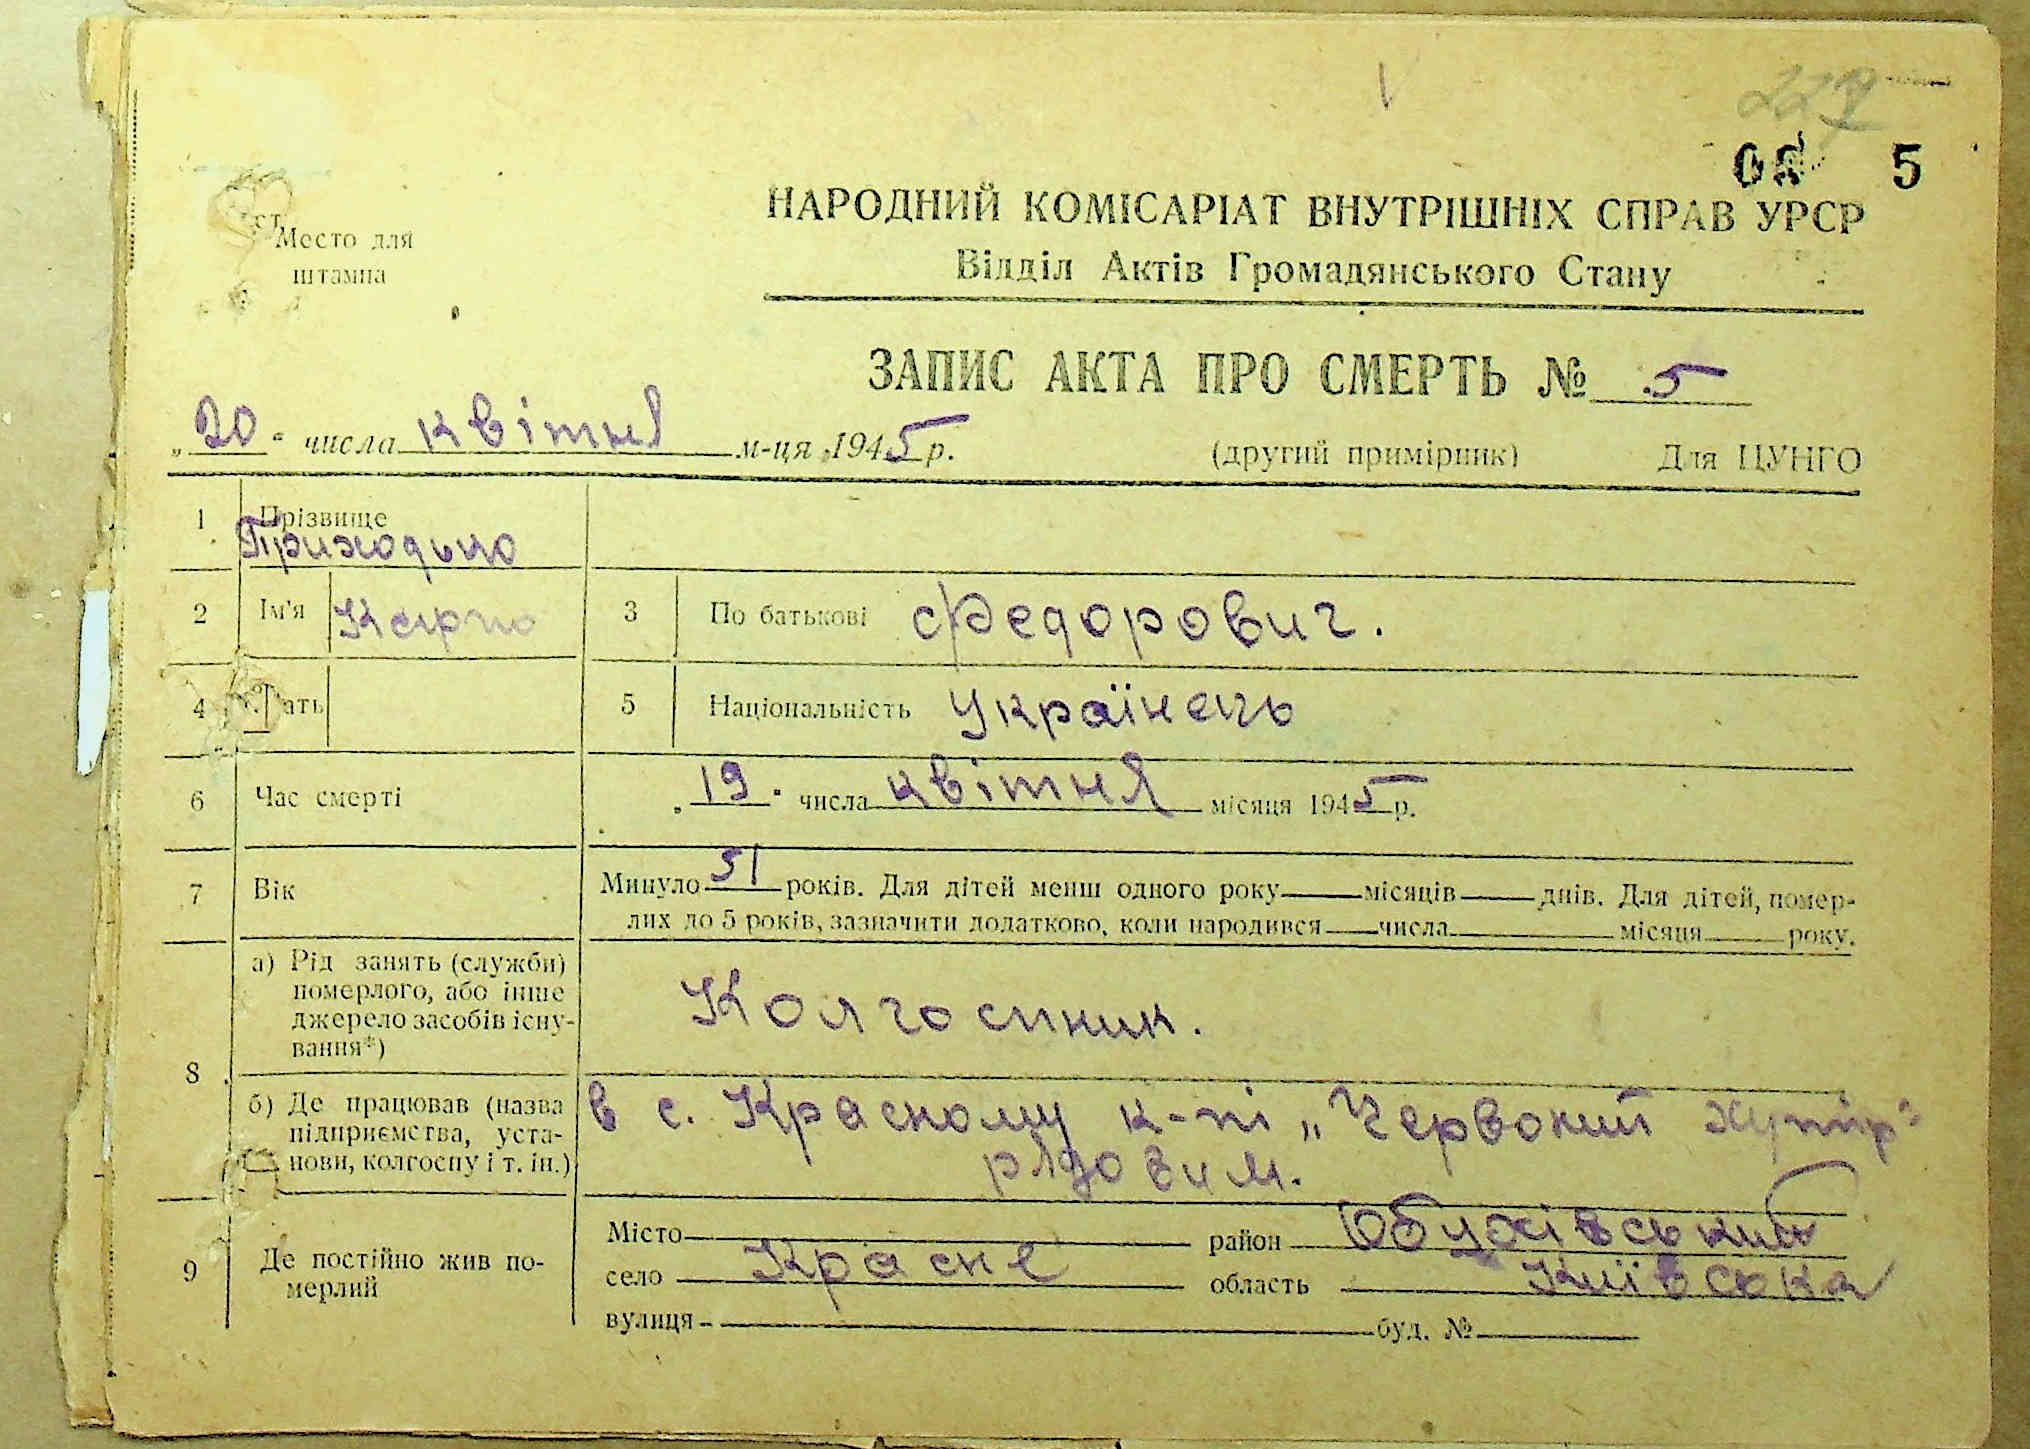 5
Место для
штампа
НАРОДНИЙ КОМІСАРІАТ ВНУТРІШНІХ СПРАВ УРСР
Відділ Актів Громадянського Стану
ЗАПИС АКТА ПРО СМЕРТЬ № 5
„20“ числа квітня м-ця 1945 р. (другий примірник) Для ЦУНГО
1 Прізвище
Приходько
2 Ім'я Карпо 3 По батькові Федорович.
4 Стать 5 Національність Українець
6 Час смерті „19“ числа квітня місяця 1945 р.
7 Вік Минуло 51 років. Для дітей менш одного року місяців днів. Для дітей, помер-
лих до 5 років, зазначити додатково, коли народився числа місяця року.
8 а) Рід занять (служби)
померлого, або інше
джерело засобів існу-
вання*) Колгоспник.
б) Де працював (назва
підприємства, уста-
нови, колгоспу і т. ін.) в с. Красному к-пі „Червоний хутір“
рядовим.
9 Де постійно жив по-
мерлий
Місто район Обухівський
село Красне область Київська
вулиця буд. №